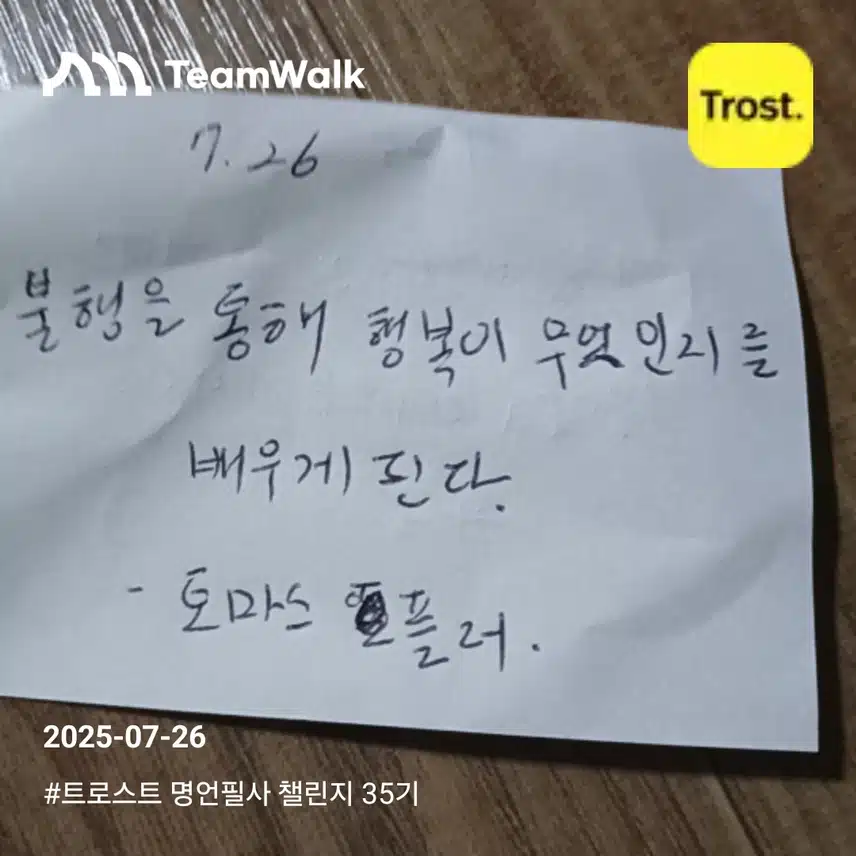 TeamWalk
Trost.
7. 26
불행을 통해 행복이 무엇인지를
배우게 된다.
- 토마스 플러.
2025-07-26
#트로스트 명언필사 챌린지 35기